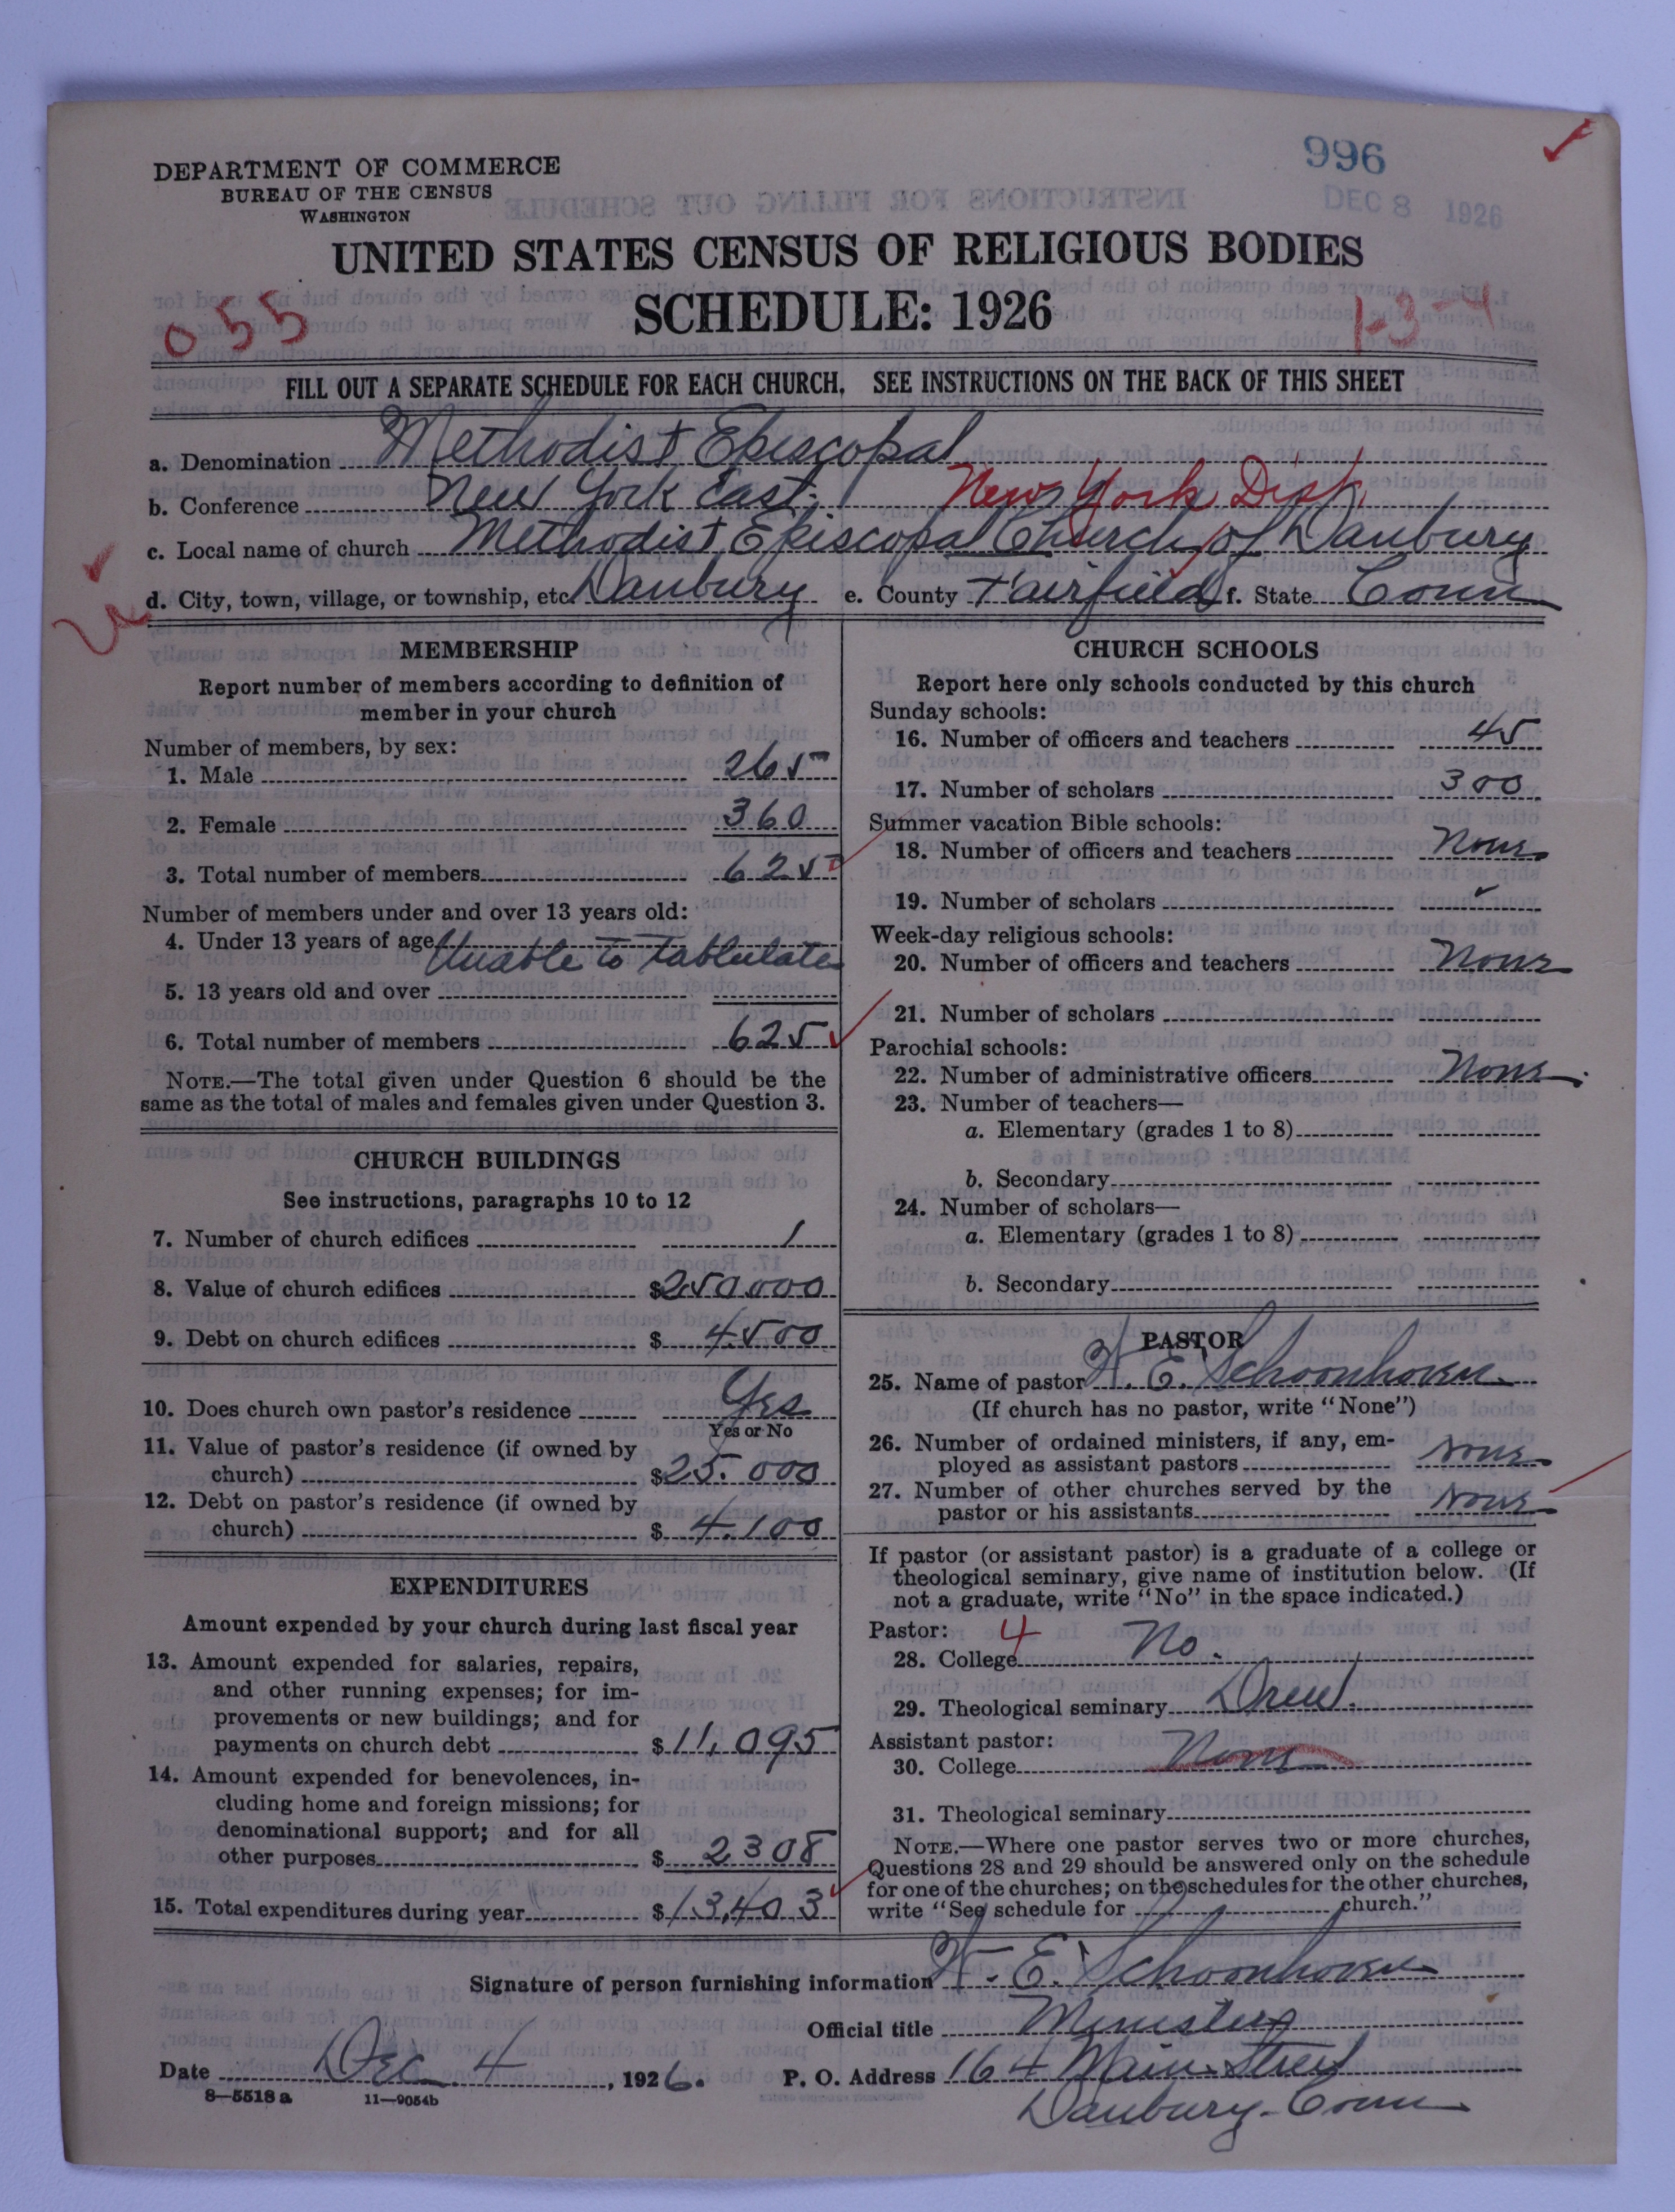 996
DEC 8 1926
DEPARTMENT OF COMMERCE
BUREAU OF THE CENSUS
WASHINGTON
UNITED STATES CENSUS OF RELIGIOUS BODIES
SCHEDULE: 1926
055
1-3-4
FILL OUT A SEPARATE SCHEDULE FOR EACH CHURCH. SEE INSTRUCTIONS ON THE BACK OF THIS SHEET
a. Denomination Methodist Episcopal
b. Conference New York East. New York Dist.
c. Local name of church Methodist Episcopal Church of Danbury
d. City, town, village, or township, etc. Danbury e. County Fairfield f. State Conn
MEMBERSHIP
Report number of members according to definition of
member in your church
Number of members, by sex:
1. Male 265
2. Female 360
3. Total number of members 625
Number of members under and over 13 years old:
4. Under 13 years of age Unable to tablulate
5. 13 years old and over
6. Total number of members 625
NOTE.—The total given under Question 6 should be the
same as the total of males and females given under Question 3.
CHURCH BUILDINGS
See instructions, paragraphs 10 to 12
7. Number of church edifices 1
8. Value of church edifices $250.000
9. Debt on church edifices $4500
10. Does church own pastor's residence Yes
Yes or No
11. Value of pastor's residence (if owned by
church) $25.000
12. Debt on pastor's residence (if owned by
church) $4.100
EXPENDITURES
Amount expended by your church during last fiscal year
13. Amount expended for salaries, repairs,
and other running expenses; for im-
provements or new buildings; and for
payments on church debt $11,095
14. Amount expended for benevolences, in-
cluding home and foreign missions; for
denominational support; and for all
other purposes $2308
15. Total expenditures during year $13,403
CHURCH SCHOOLS
Report here only schools conducted by this church
Sunday schools:
16. Number of officers and teachers 45
17. Number of scholars 300
Summer vacation Bible schools:
18. Number of officers and teachers None
19. Number of scholars
Week-day religious schools:
20. Number of officers and teachers None
21. Number of scholars
Parochial schools:
22. Number of administrative officers None.
23. Number of teachers—
a. Elementary (grades 1 to 8)
b. Secondary
24. Number of scholars—
a. Elementary (grades 1 to 8)
b. Secondary
PASTOR
25. Name of pastor H. E. Schoonhoven
(If church has no pastor, write "None")
26. Number of ordained ministers, if any, em-
ployed as assistant pastors None
27. Number of other churches served by the
pastor or his assistants None
If pastor (or assistant pastor) is a graduate of a college or
theological seminary, give name of institution below. (If
not a graduate, write "No" in the space indicated.)
Pastor: 4
28. College No.
29. Theological seminary Drew.
Assistant pastor:
30. College None
31. Theological seminary
NOTE.—Where one pastor serves two or more churches,
Questions 28 and 29 should be answered only on the schedule
for one of the churches; on the schedules for the other churches,
write "See schedule for church."
Signature of person furnishing information H. E. Schoonhoven
Official title Minister
Date Dec. 4, 1926. P. O. Address 164 Main Street
Danbury-Conn
8—5518 a 11—9054b